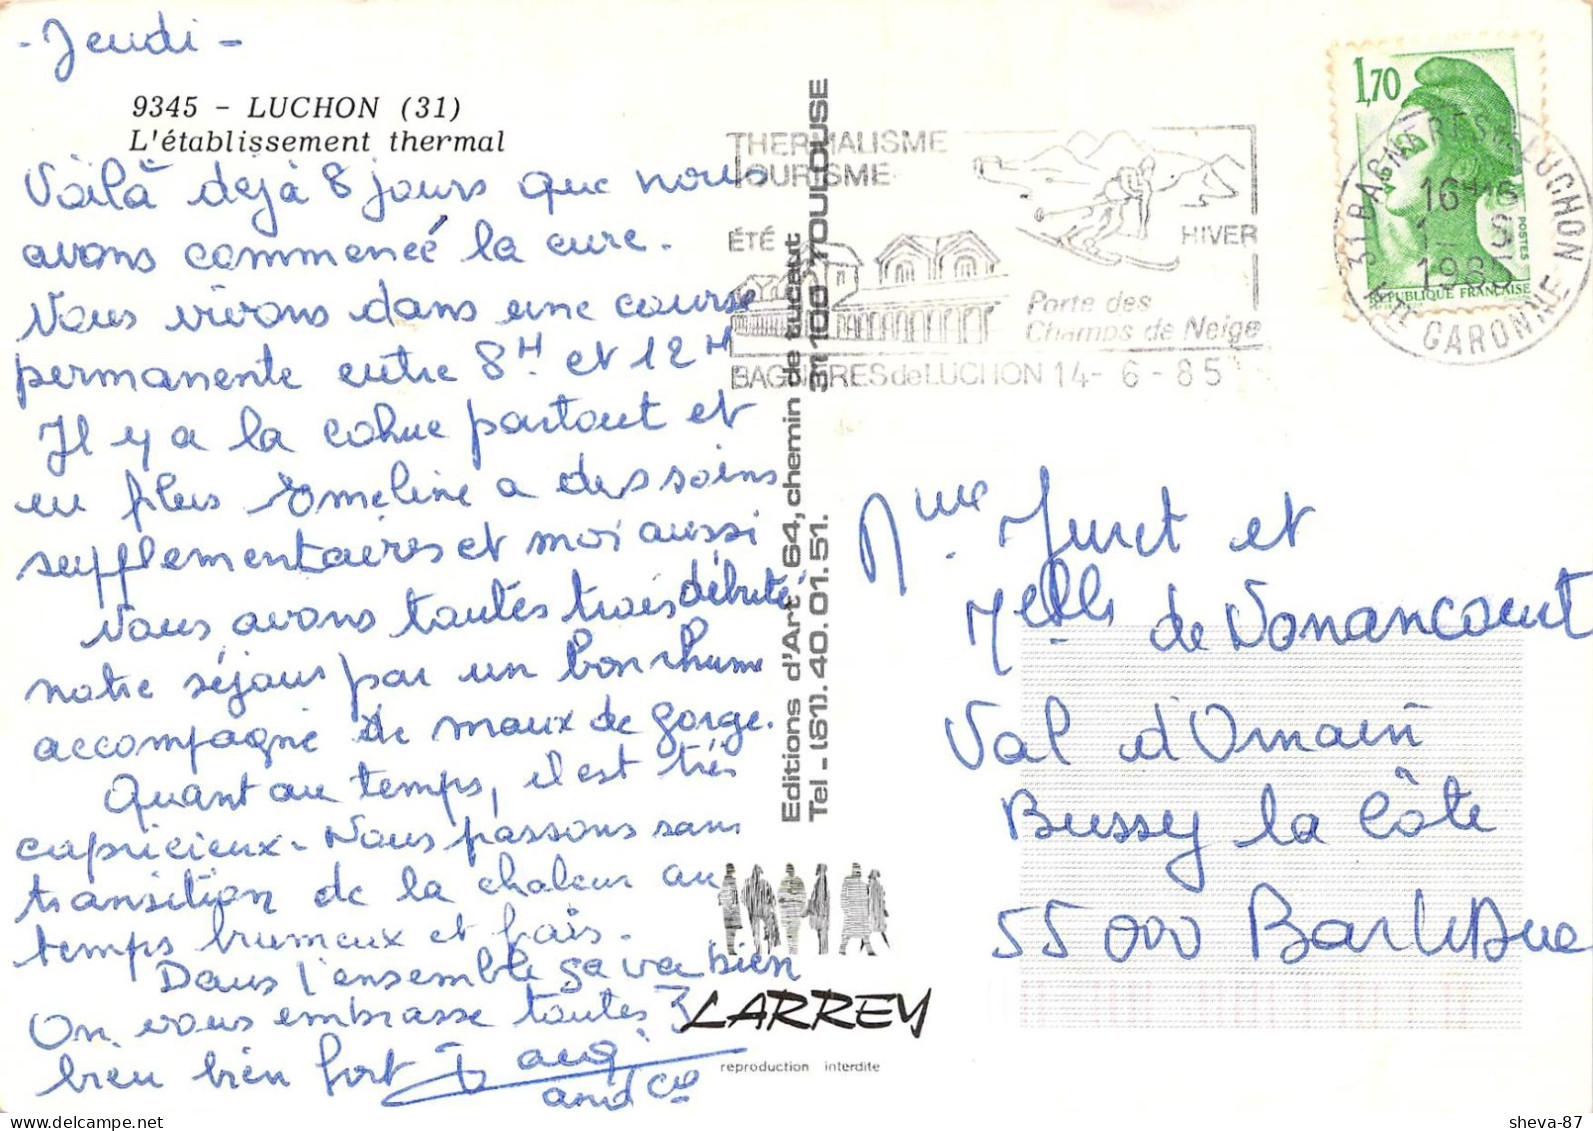 - Jeudi -
9345 - LUCHON (31)
L'établissement thermal
Voilà déjà 8 jours que nous
avons commencé la cure.
Nous vivons dans une course
permanente entre 8H et 12H
Il y a la cohue partout et
en plus Emeline a des soins
supplementaires et moi aussi
Nous avons toutes trois débuté
notre séjour par un bon rhume
accompagné de maux de gorge.
Quant au temps, il est très
capricieux. Nous passons sans
transition de la chaleur au
temps brumeux et frais.
Dans l'ensemble ça va bien
On vous embrasse toutes 3
bien bien fort
and Cie
Editions d'Art 64, chemin de Tucaut
Tel - (61). 40. 01. 51. 31100 TOULOUSE
LARREY
reproduction interdite
THERMALISME
TOURISME
ÉTÉ
HIVER
Porte des
Champs de Neige
BAGNERES de LUCHON 14- 6 - 85
1,70
POSTES
REPUBLIQUE FRANCAISE
31 BAGNERES DE LUCHON
16H15
1985
HTE GARONNE
Mme Juret et
Melle de Vonancourt
Val d'Ornain
Bussy la Côte
55000 Bar le Duc
sheva-87